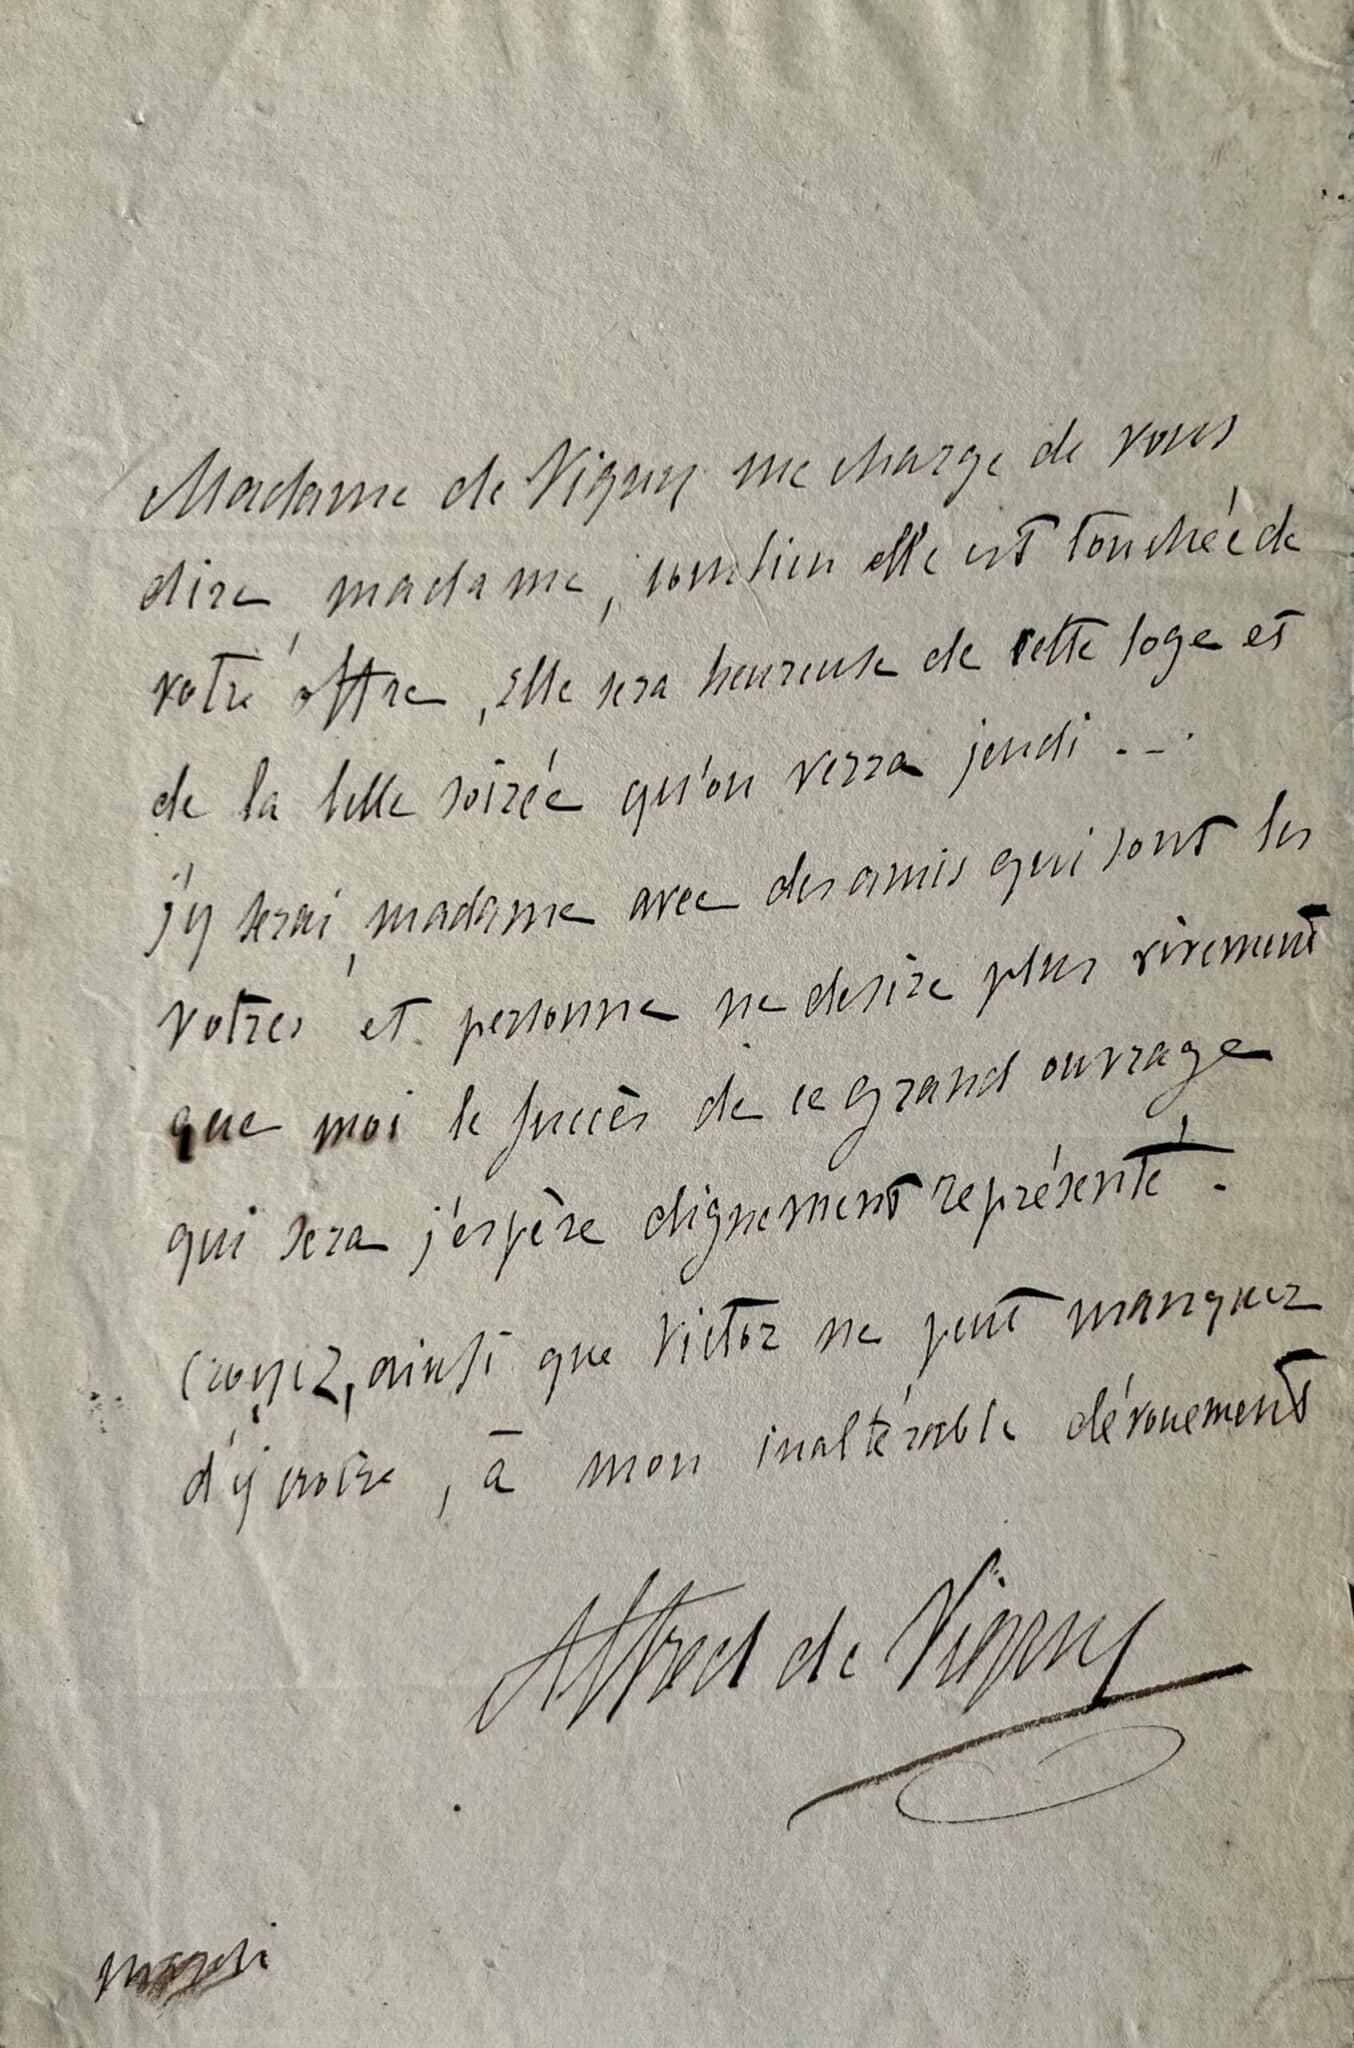 Madame de Vigny me charge de vous
dire, madame, combien elle est touchée de
votre offre, Elle sera heureuse de cette loge et
de la belle soirée qu'on verra jeudi . - .
j'y serai, madame avec des amis qui sont les
votres et personne ne desire plus vivement
que moi le succès de ce grand ouvrage
qui sera j'espère dignement représenté .
Croyez, ainsi que Victor ne peut manquer
d'y croire, à mon inaltérable dévouement
Alfred de Vigny
mardi